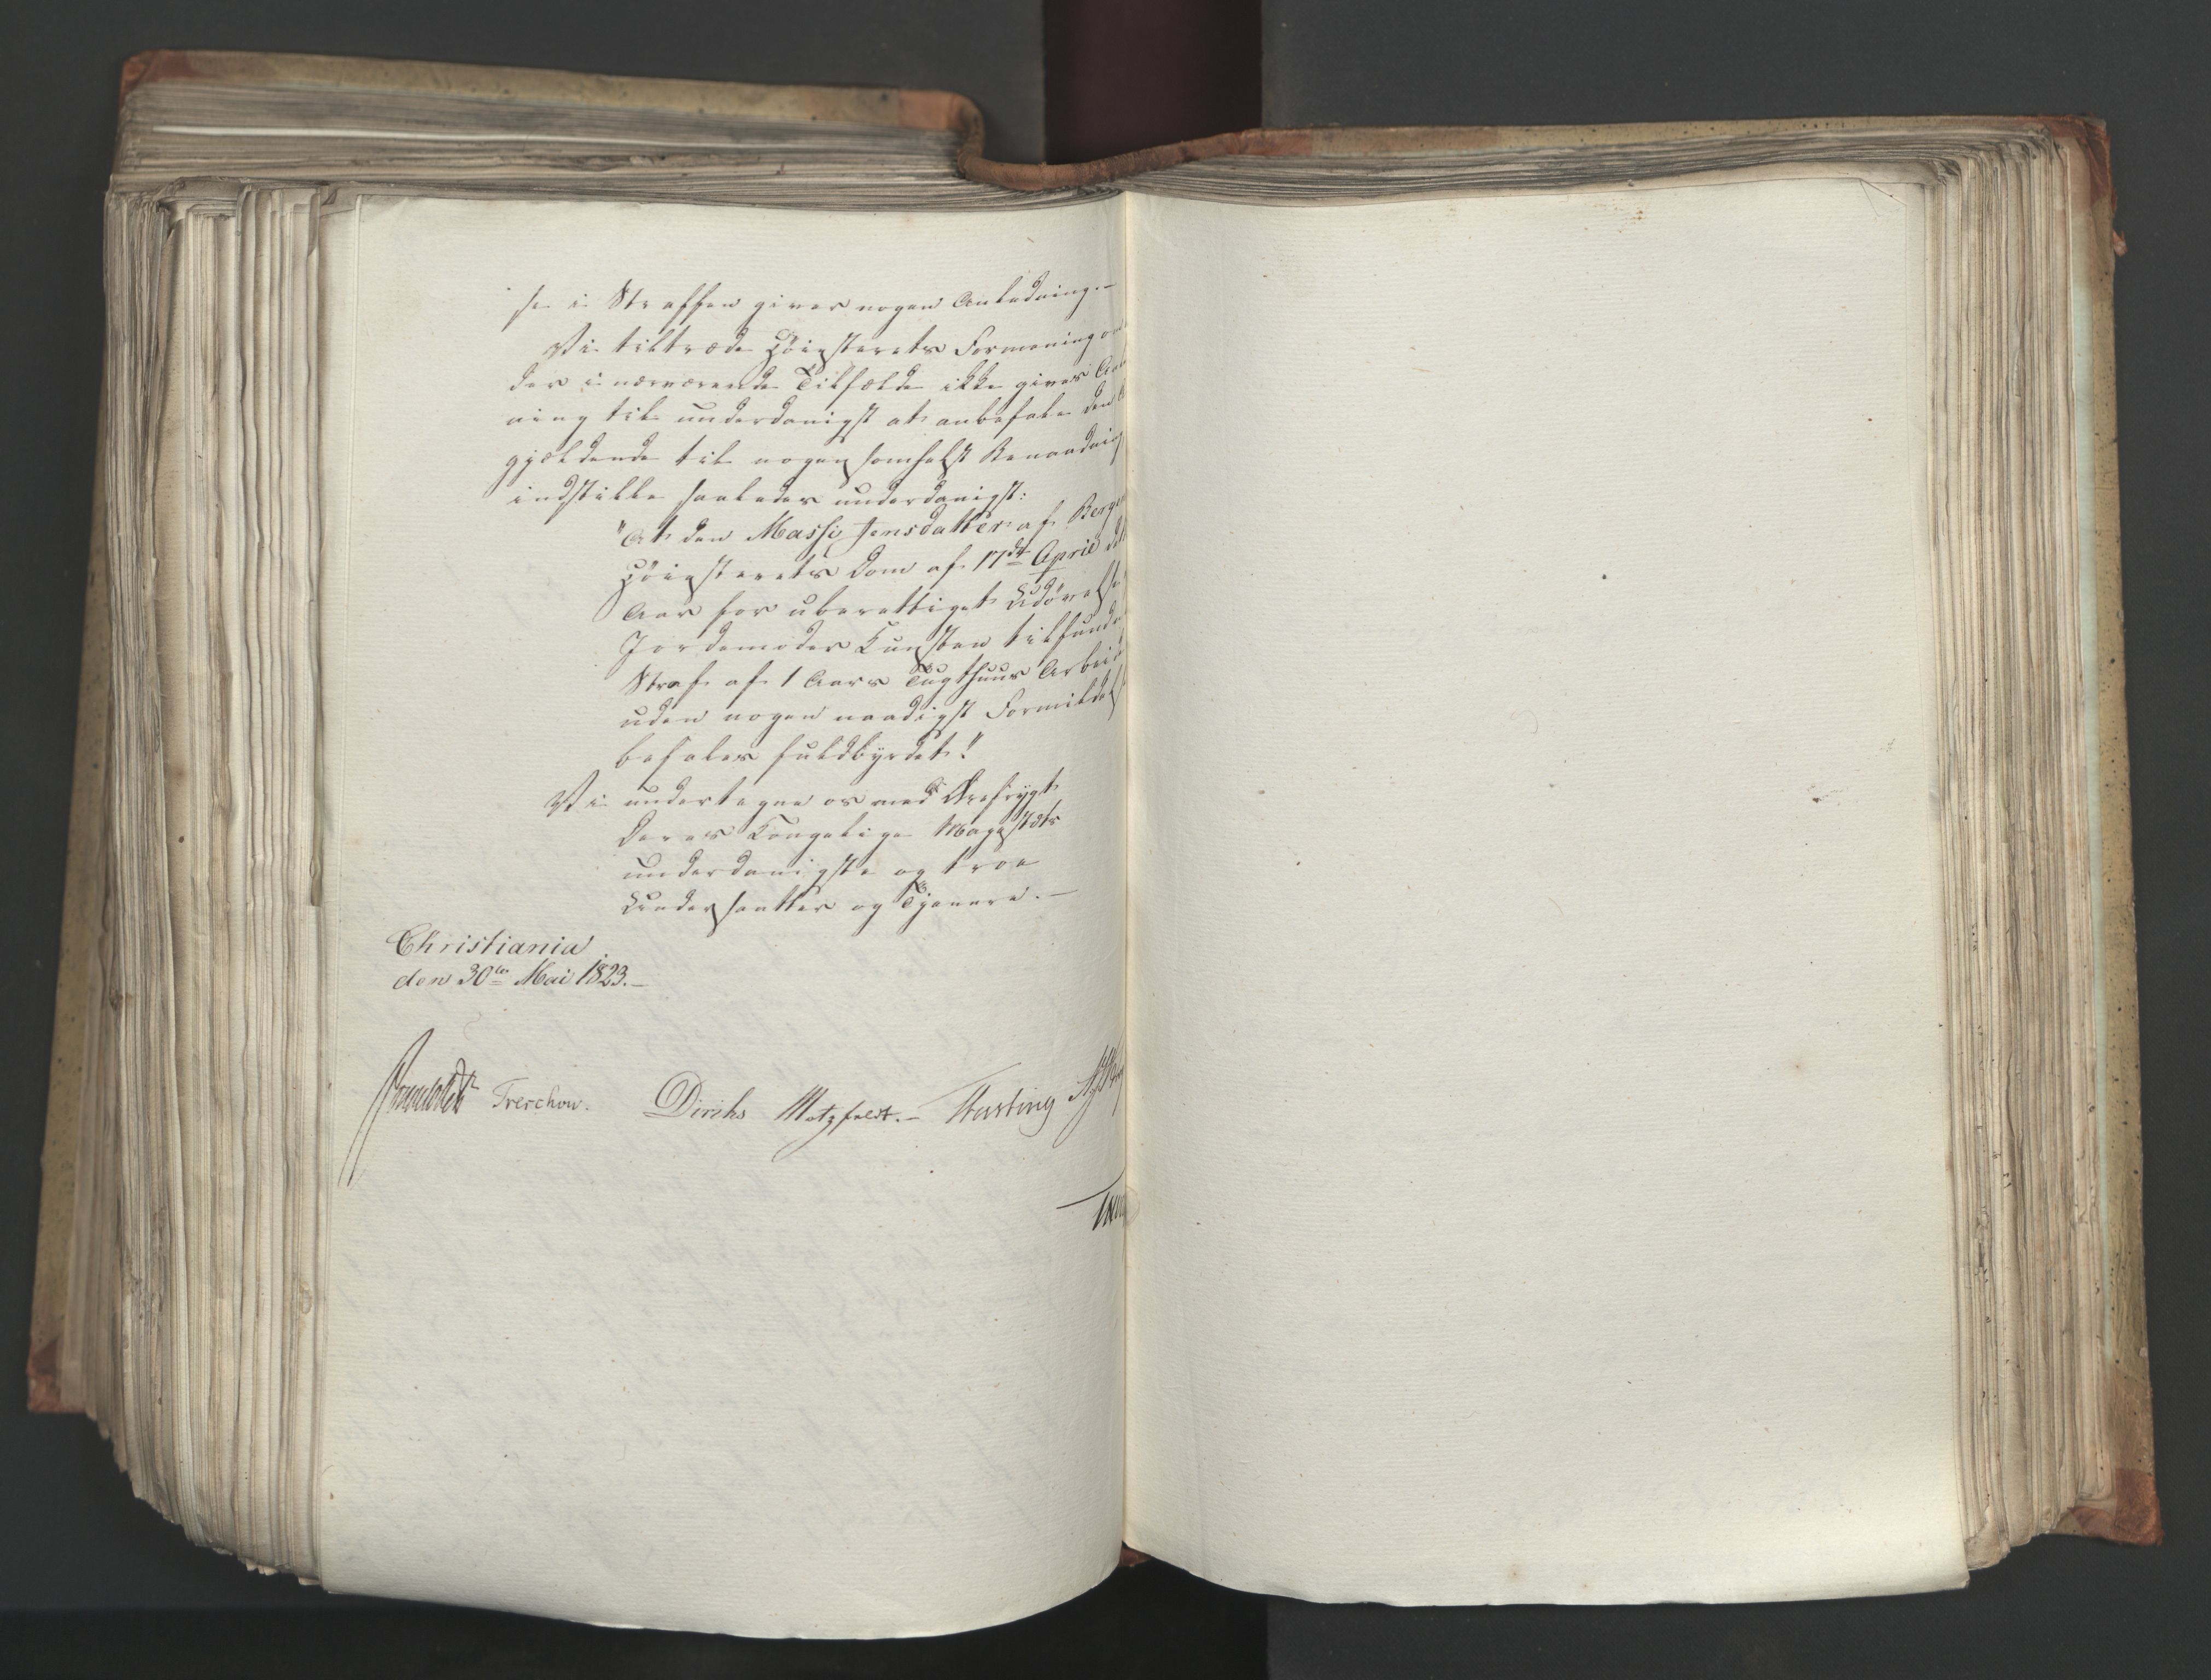 se i Straffen giver nogen Anledning.—
Vi tiltræde Høiesterets Formening om
der i nærværende Tilfælde ikke gives
ning til underdanigst at anbefale den
gjældende til nogensomhelst Benaadning
indstille saaledes underdanigst:
"At den Massi Jensdatter af Bergen
Høiesterets Dom af 17de April
Aar for uberettiget Udøvelse
Jordemoder Kunsten tilfundne
Straf af 1 Aars Tugthuus Arbeide
uden nogen naadigst Formildelse
befales fuldbyrdet!"
Vi undertegne os med Ærefrygt
Deres Kongelige Majestæts
underdanigste og troe
Undersaatter og Tjenere.—
Christiania
den 30te Mai 1823.—
Treschow. Diriks Motzfeldt.—